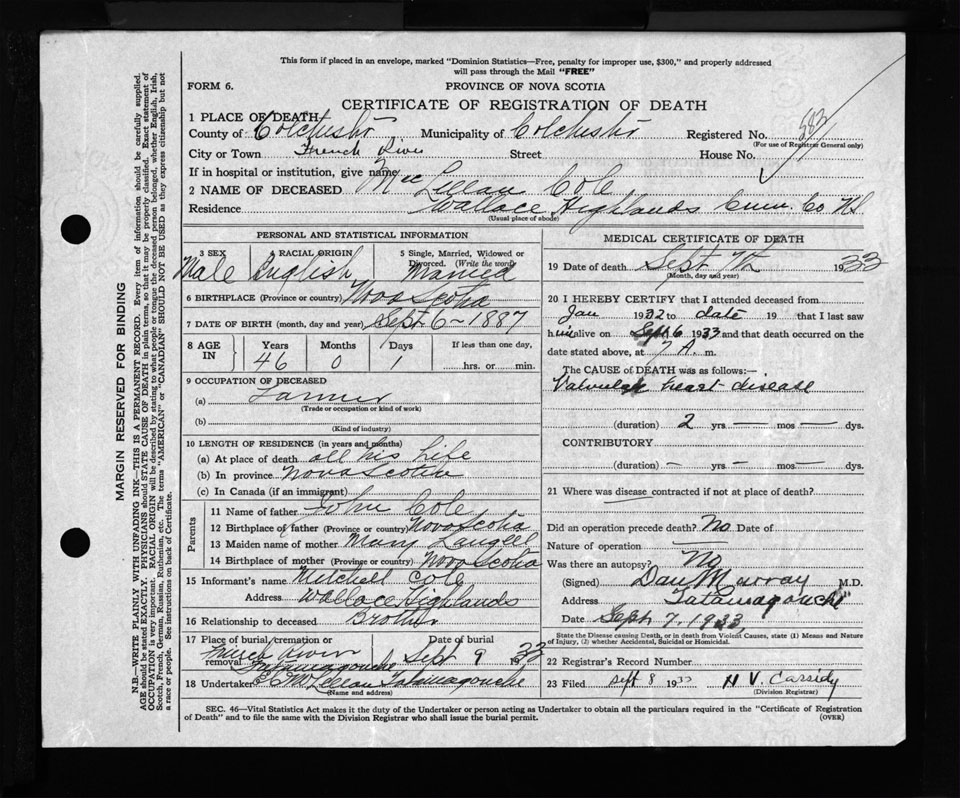 This form if placed in an envelope, marked "Dominion Statistics—Free, penalty for improper use, $300," and properly addressed
will pass through the Mail "FREE"
FORM 6.
PROVINCE OF NOVA SCOTIA
CERTIFICATE OF REGISTRATION OF DEATH
1 PLACE OF DEATH
County of Colchester Municipality of Colchester Registered No. 583
(For use of Registrar General only)
City or Town French River Street House No.
If in hospital or institution, give name
2 NAME OF DECEASED MacLellan Cole
Residence Wallace Highlands Cum. Co NS
(Usual place of abode)
PERSONAL AND STATISTICAL INFORMATION
3 SEX 4 RACIAL ORIGIN 5 Single, Married, Widowed or Divorced. (Write the word)
Male English Married
6 BIRTHPLACE (Province or country) Nova Scotia
7 DATE OF BIRTH (month, day and year) Sept. 6 - 1887
8 AGE IN Years Months Days If less than one day,
46 0 1 hrs. or min.
9 OCCUPATION OF DECEASED
(a) Farmer
(Trade or occupation or kind of work)
(b)
(Kind of industry)
10 LENGTH OF RESIDENCE (in years and months)
(a) At place of death all his life
(b) In province Nova Scotia
(c) In Canada (if an immigrant)
Parents
11 Name of father John Cole
12 Birthplace of father (Province or country) Nova Scotia
13 Maiden name of mother Mary
14 Birthplace of mother (Province or country) Nova Scotia
15 Informant's name Mitchell Cole
Address Wallace Highlands
16 Relationship to deceased Brother
17 Place of burial, cremation or removal Date of burial
French River
Tatamagouche Sept 9 1933
18 Undertaker McLellan Tatamagouche
(Name and address)
MEDICAL CERTIFICATE OF DEATH
19 Date of death Sept 7th 1933
(Month, day and year)
20 I HEREBY CERTIFY that I attended deceased from
Jan 1932 to date 19 that I last saw
him alive on Sept 6 1933 and that death occurred on the
date stated above, at 7 A. m.
The CAUSE of DEATH was as follows:
Valvular heart disease
(duration) 2 yrs — mos — dys.
CONTRIBUTORY
(duration) — yrs — mos — dys.
21 Where was disease contracted if not at place of death?
Did an operation precede death? No Date of
Nature of operation —
Was there an autopsy? No
(Signed) Dan Murray M.D.
Address Tatamagouche
Date Sept 7, 1933
State the Disease causing Death, or in death from Violent Causes, state (1) Means and Nature
of Injury, (2) whether Accidental, Suicidal or Homicidal.
22 Registrars Record Number
23 Filed Sept 8 1933 H V. Cassidy
(Division Registrar)
SEC. 46—Vital Statistics Act makes it the duty of the Undertaker or person acting as Undertaker to obtain all the particulars required in the "Certificate of Registration
of Death" and to file the same with the Division Registrar who shall issue the burial permit.
(OVER)
MARGIN RESERVED FOR BINDING
N.B—WRITE PLAINLY WITH UNFADING INK—THIS IS A PERMANENT RECORD. Every item of information should be carefully supplied.
AGE should be stated EXACTLY. PHYSICIANS should STATE CAUSE OF DEATH in plain terms, so that it may be properly classified. Exact statement of
OCCUPATION is very important. RACIAL ORIGIN will be described by stating to what people or tongue the deceased person belonged, whether English, Irish,
Scotch, French, German, Russian, Ruthenian, etc. The terms "AMERICAN" or "CANADIAN" SHOULD NOT BE USED as they express citizenship but not
a race or people. See instructions on back of Certificate.